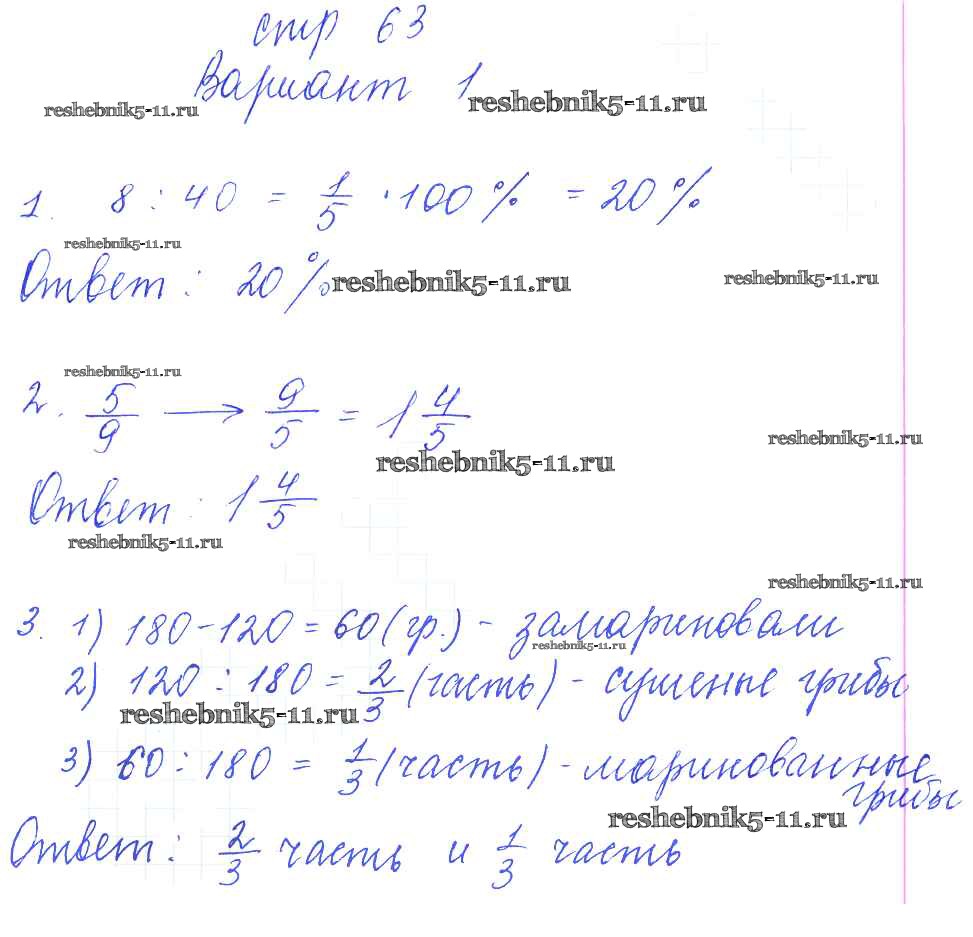 стр 63
Вариант 1
reshebnik5-11.ru
reshebnik5-11.ru
1. 8 : 40 = 1/5 · 100 % = 20 %
reshebnik5-11.ru
Ответ : 20 %
reshebnik5-11.ru
reshebnik5-11.ru
reshebnik5-11.ru
2. 5/9 → 9/5 = 1 4/5
reshebnik5-11.ru
reshebnik5-11.ru
Ответ : 1 4/5
reshebnik5-11.ru
reshebnik5-11.ru
3. 1) 180 - 120 = 60 (гр.) - замариновали
reshebnik5-11.ru
2) 120 : 180 = 2/3 (часть) - сушеные грибы
reshebnik5-11.ru
3) 60 : 180 = 1/3 (часть) - маринованные
грибы
reshebnik5-11.ru
Ответ : 2/3 часть и 1/3 часть